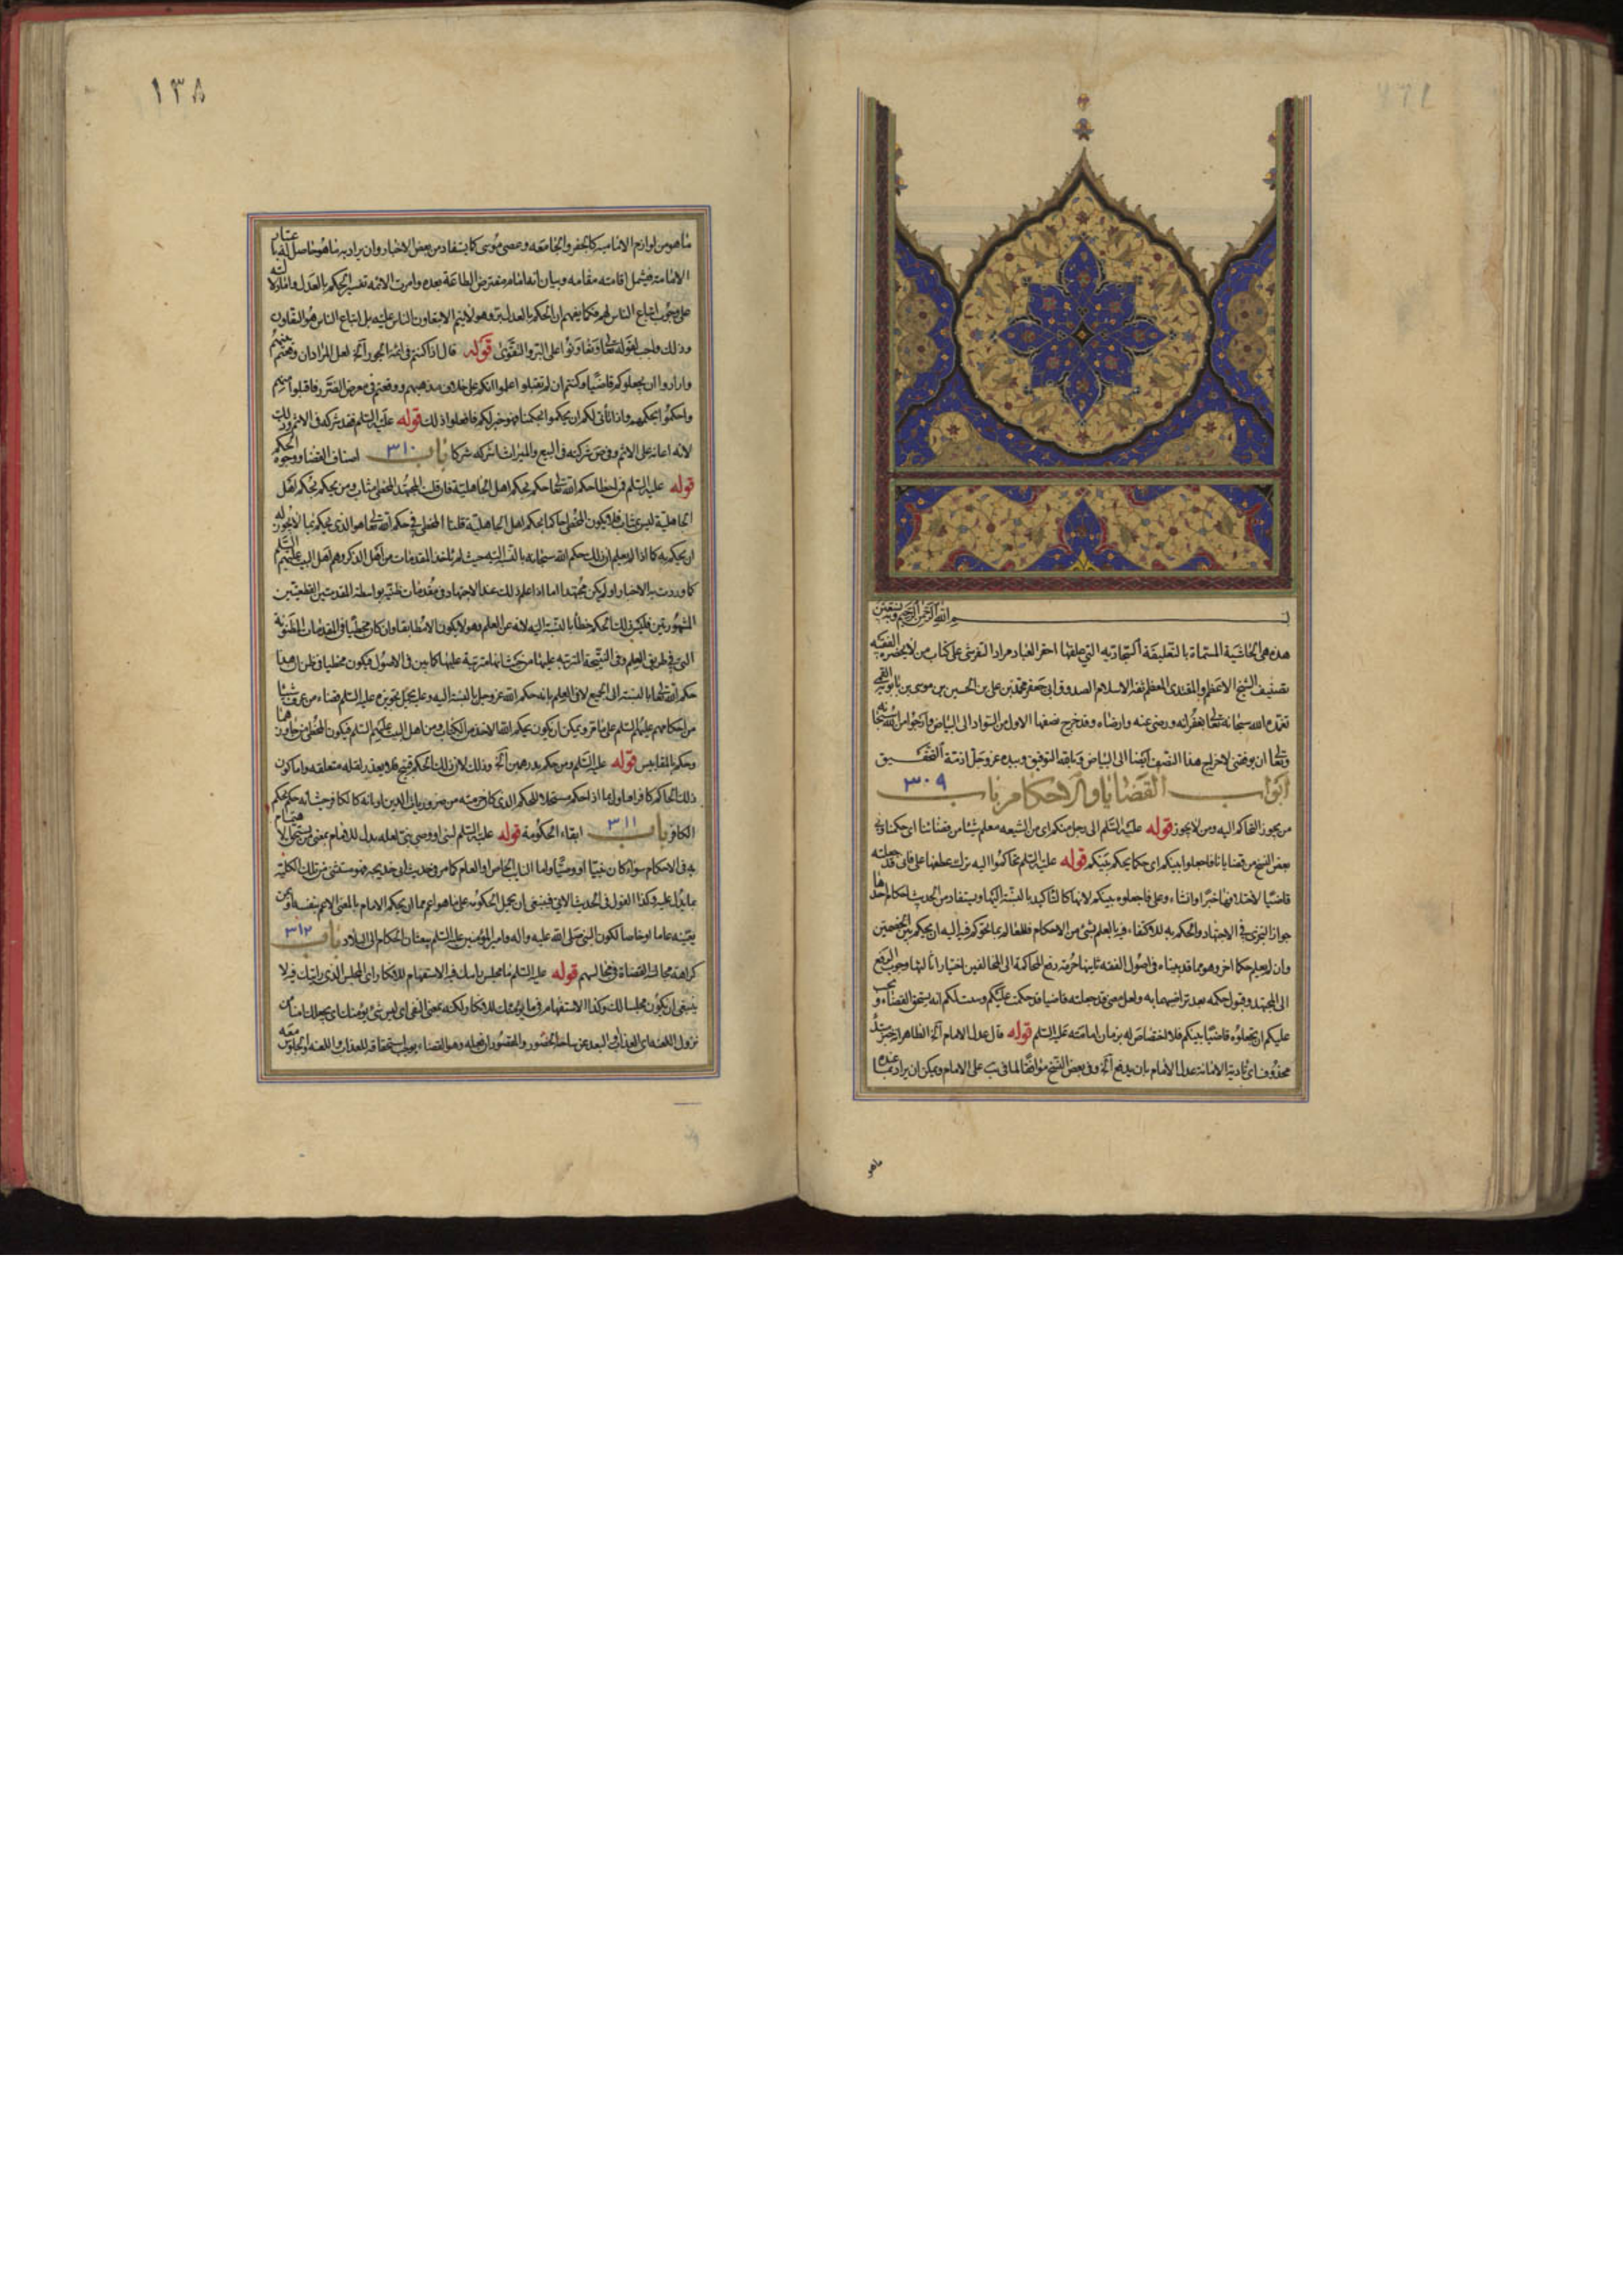 بسم الله الرحمن الرحيم وبه نستعين
هذه هى الحاشية المسماة بالتعليقة السجادية التي علقها احقر العباد مراد التفرشى على كتاب من لا يحضره الفقيه
تصنيف الشيخ الاعظم والمقتدى المعظم ثقة الاسلام الصدوق ابى جعفر محمد بن على بن الحسين بن موسى بن بابويه القمى
تغمده الله سبحانه تعالى بغفرانه ورضى عنه وارضاه وقد خرج نصفها الاول من السواد الى البياض وارجوا من الله سبحانه
وتعالى ان يوفقنى لاخراج هذا النصف ايضا الى البياض وبالله التوفيق وبيده عز وجل ازمة التحقيق
ابواب القضايا والاحكام باب ٣٠٩
من يجوز التحاكم اليه ومن لا يجوز قوله عليه السلم الى رجل منكم اى من الشيعه يعلم شيئا من قضائنا اى حكمنا وفى
بعض النسخ من قضايانا فاجعلوا بينكم اى حكما يحكم بينكم قوله عليه السلم تحاكموا اليه ترك عطفها على فانى قد جعلته
قاضيا لاختلافهما خبرا وانشاء وعلى فاجعلوه بينكم لانها كالتاكيد بالنسبة اليها ويستفاد من الحديث احكام احدها
جواز التجزى فى الاجتهاد والحكم به للاكتفاء فيه بالعلم بشئ من الاحكام
وان لم يعلم حكما اخر وهو مما قد بيناه فى اصول الفقه ثانيها حرمة رفع المحاكمة الى المخالفين اختيارا ثالثها وجوب الرفع
الى المجتهد وقبول حكمه بعد تراضيهما به ولعل معنى قد جعلته قاضيا قد حكمت عليكم انه يستحق القضاء ويجب
عليكم ان تجعلوه قاضيا بينكم فلا اختصاص له بزمان امامته عليه السلم قوله قال عدل الامام آه الظاهر انه خبر مبتدأ
محذوف اى تادية الامانة عدل الامام بان يدفع آه وفى بعض النسخ موافقا لما فى يب على الامام ويمكن ان يراد بما عنده
ماهو
١٣٨
ماهو من لوازم الامامية كالجفر والجامعه وعصى موسى كما يستفاد من بعض الاخبار وان يراد به ماهو حاصل له باعتبار
الامامة فيشمل اقامته مقامه وبيان انه امام مفترض الطاعة بعده وامرت الائمه تفسير الحكم بالعدل
على وجوب اتباع الناس لهم فكما يفهم ان الحكم بالعدل بر وهو لا يتم الا بتعاون الناس عليه بل اتباع الناس هو التعاون
وذلك واجب لقوله تعالى وتعاونوا على البر والتقوى قوله قال اذا كنتم فى ائمة الجور آه لعل المراد ان
وارادوا ان يجعلوكم قاضيا وكنتم ان لم تقبلوا اعلموا انكم على خلاف مذهبهم ووقعتم فى معرض الضرر فاقبلوا منهم
واحكموا بحكمهم واذا تأتى لكم ان يحكموا بحكمنا فهو خير لكم فافعلوا ذلك قوله عليه السلم فقد شركه فى الاثم وذلك
لانه اعانه على الاثم وفى ص شركته فى البيع والميراث اشركه شركا باب ٣١٠ اصناف القضا ووجوه الحكم
قوله عليه السلم فمن اخطا حكم الله تعالى حكم بحكم اهل الجاهلية فان قلت المجتهد المخطى مثاب ومن يحكم بحكم اهل
الجاهلية ليس بمثاب فلا يكون المخطى حاكما بحكم اهل الجاهلية قلنا المخطى فى حكم الله تعالى هو الذى يحكم بما لا يجوز له
ان يحكم به كما اذا لم يعلم ان ذلك حكم الله سبحانه بالنسبة اليه حيث لم ياخذ المقدمات من اهل الذكر وهم اهل البيت عليهم السلم
كما وردت به الاخبار او لم يكن مجتهدا اما اذا علم ذلك عند الاجتهاد فى مقدمات ظنية بواسطة المقدمتين القطعيتين
المشهورتين فليس ذلك الحكم خطأ بالنسبة اليه لانه عن العلم وهو لا يكون الا مطابقا وان كان مخطيا فى المقدمات المظنونة
التى فى طريق العلم وفى النتيجة المترتبه عليها من حيث انها مترتبة عليها كما بين فى الاصول فيكون مخطيا فى ظن ان هذا
حكم الله تعالى بالنسبة الى الجميع لا فى العلم بانه حكم الله عز وجل بالنسبة اليه وعليه يحمل تجويزه عليه السلم قضاء من عرف شيئا
من احكامهم عليهم السلم على ما مر ويمكن ان يكون بحكم الله الاخذ من الكتاب ومن اهل البيت عليهم السلم فيكون المخطى من جاوزهما
وحكم بالمقاييس قوله عليه السلم ومن حكم بدرهمين آه وذلك لان ذلك الحكم قبيح فلا يعذر لقلة متعلقه واما كون
ذلك الحاكم كافرا
الكافر باب ٣١١ اتقاء الحكومة قوله عليه السلم لنبى او وصى نبى لعله بدل للامام بمعنى
به فى الاحكام سواء كان نبيا او وصيا واما النايب الخاص او العام كما مر فى حديث ابى خديجه فهو مستثنى من تلك الكلية
بما يدل عليه وكذا القول فى الحديث الاتى فينبغى ان يحمل الحكومه على ماهو اعم مما ان يحكم الامام بالمعنى الاعم بنفسه او بمن
يعينه عاما او خاصا لكون النبى صلى الله عليه واله وامير المؤمنين عليه السلم يبعثان الحكام الى البلاد باب ٣١٢
كراهة مجالسة القضاة فى مجالسهم قوله عليه السلم ما مجلس رايتك فيه الاستفهام للانكار اى المجلس الذى رايتك فيه لا
ينبغى ان يكون مجلسا لك وكذا الاستفهام فى ما يؤمنك للانكار ولكنه بمعنى النفى اى ليس شئ يؤمنك اى يجعلك امنا من
نزول اللعنة اى العذاب والبعد عن ساحة الحضور